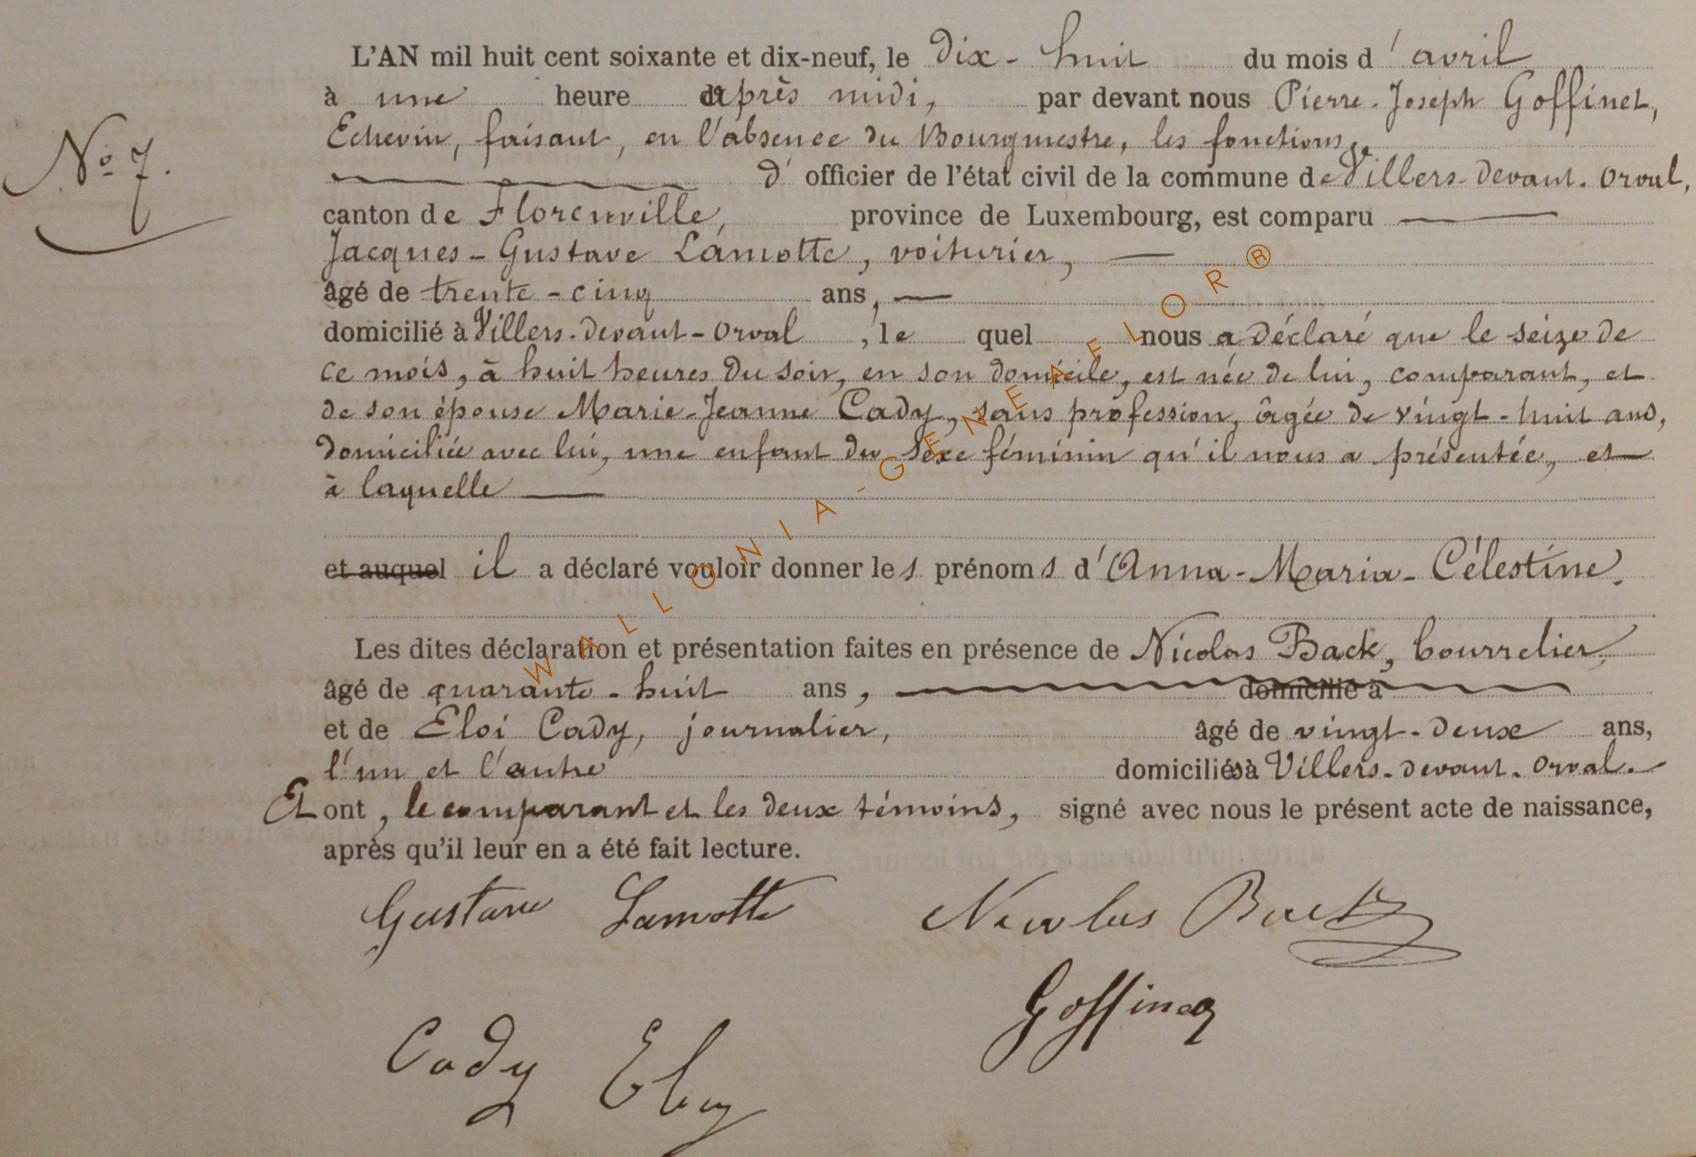 L'AN mil huit cent soixante et dix-neuf, le dix-huit du mois d'avril
à une heure après midi, par devant nous Pierre-Joseph Goffinet,
Echevin, faisant, en l'absence du Bourgmestre, les fonctions
N° 7.
d'officier de l'état civil de la commune de Villers-devant-Orval,
canton de Florenville, province de Luxembourg, est comparu
Jacques-Gustave Lamotte, voiturier,
âgé de trente-cinq ans,
domicilié à Villers-devant-Orval, lequel nous a déclaré que le seize de
ce mois, à huit heures du soir, en son domicile, est née de lui, comparant, et
de son épouse Marie-Jeanne Cady, sans profession, âgée de vingt-huit ans,
domiciliée avec lui, une enfant du sexe féminin qu'il nous a présentée, et
à laquelle
et auquel il a déclaré vouloir donner les prénoms d'Anna-Maria-Célestine.
Les dites déclaration et présentation faites en présence de Nicolas Back, bourrelier,
âgé de quarante-huit ans, domicilié à
et de Eloi Cady, journalier, âgé de vingt-deux ans,
l'un et l'autre domiciliés à Villers-devant-Orval.
Et ont, le comparant et les deux témoins, signé avec nous le présent acte de naissance,
après qu'il leur en a été fait lecture.
Gustave Lamotte Nicolas Back
Goffinet
Cady Eloy
WALLONIA-GENEAFLOR®